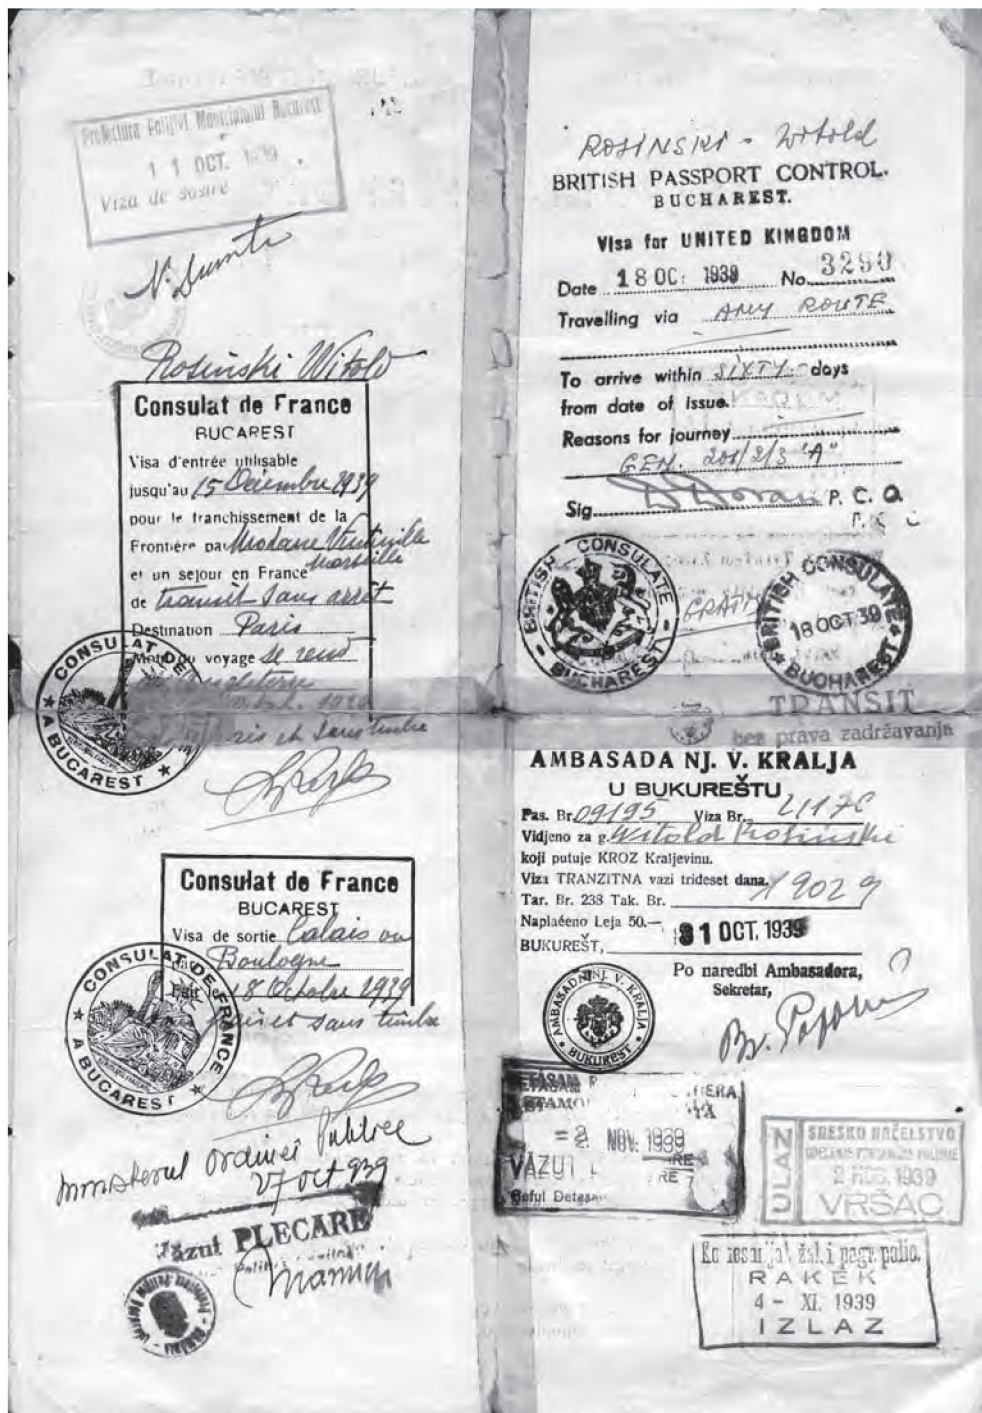 Prefectura Poliției Municipiului Bucuresti
11 OCT. 1939
Viza de sosire
Rosinski Witold
Consulat de France
BUCAREST
Visa d'entrée utilisable
jusqu'au 15 Décembre 1939
pour le franchissement de la
Frontière par Modane Vintimille
Marseille
et un séjour en France
de transit sans arrêt
Destination Paris
Motif du voyage se rend
Angleterre
et sans timbre
CONSULAT DE
A BUCAREST
Consulat de France
BUCAREST
Visa de sortie Calais ou
Boulogne
18 Octobre 1939
et sans timbre
CONSULAT DE FRANCE
A BUCAREST
Ministerul Ordinei Publice
27 oct 939
Văzut PLECARE
ROSINSKI - Witold
BRITISH PASSPORT CONTROL.
BUCHAREST.
Visa for UNITED KINGDOM
Date 18 OC: 1939 No. 3290
Travelling via ANY ROUTE
To arrive within SIXTY - days
from date of issue.
Reasons for journey
GEN. 201/2/3 "A"
Sig. P. C. O.
BRITISH CONSULATE
- BUCHAREST -
BRITISH CONSULATE
18 OCT 39
BUCHAREST
TRANSIT
bez prava zadržavanja
AMBASADA NJ. V. KRALJA
U BUKUREŠTU
Pas. Br. 09195 Viza Br.
Vidjeno za g. Witold Rosinski
koji putuje KROZ Kraljevinu.
Viza TRANZITNA vazi trideset dana.
Tar. Br. 238 Tak. Br. 19029
Naplaćeno Leja 50.—
BUKUREŠT, 31 OCT. 1939
Po naredbi Ambasadora,
Sekretar,
AMBASADA NJ. V. KRALJA
· BUKUREST ·
= 2. NOV. 1939
VĂZUT
Seful Detasam
ULAZ
SRESKO NAČELSTVO
2 NOV. 1939
VRŠAC
Komesarijat žel. i pogr. polic.
RAKEK
4 - XI. 1939
IZLAZ